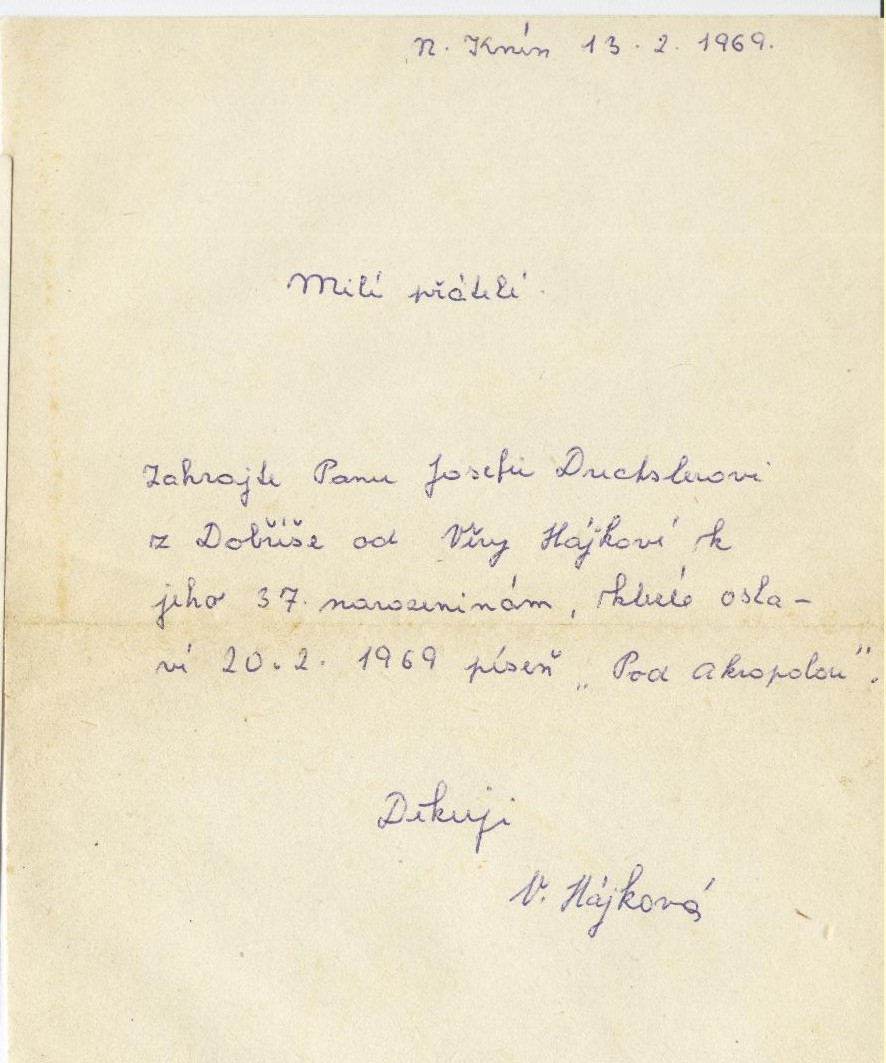 N. Knín 13. 2. 1969.
Milí přátelé.
Zahrajte Panu Josefu Drechslerovi
z Dobříše od Věry Hájkové k
jeho 37. narozeninám, které osla-
ví 20. 2. 1969 píseň „Pod Akropolou".
Děkuji
V. Hájková